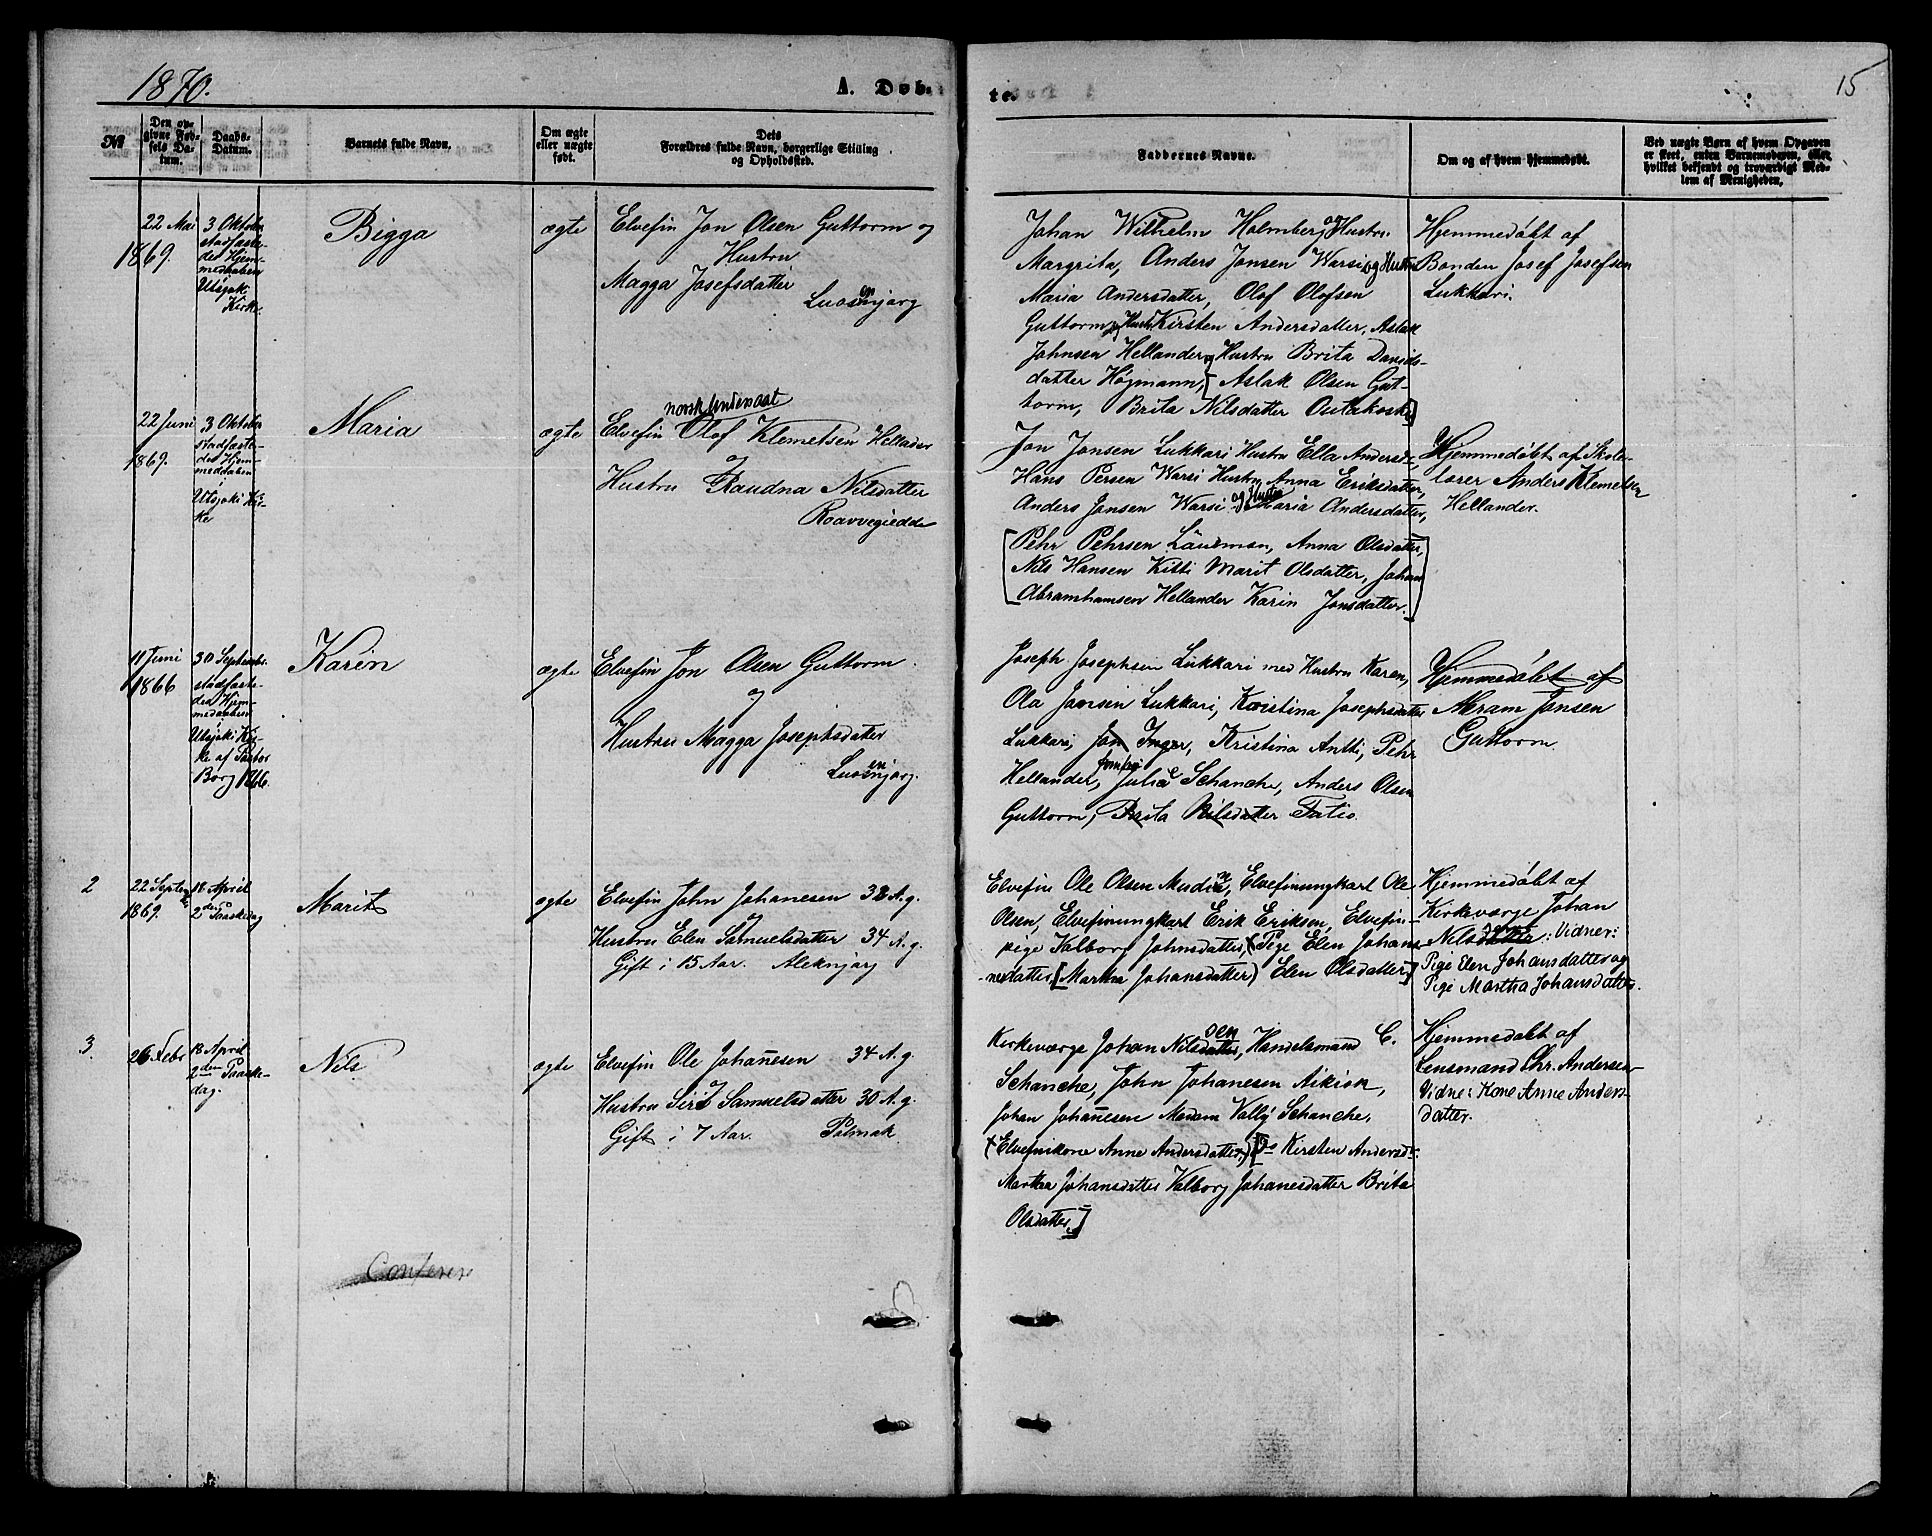 1870.
A. Døb-
te.
15
№
Den op-
givne Fød-
sels Da-
tum.
Daabs-
Datum.
Barnets fulde Navn.
Om ægte
eller uægte
født.
Dets
Forældres fulde Navn, borgerlige Stilling
og Opholdssted.
Faddernes Navne.
Om og af hvem hjemmedøbt.
Ved uægte Børn af hvem Opgaven
er skeet, enten Barnemoderen, eller
hvilket bekjendt og troværdigt Med-
lem af Menigheden.
22 Mai
1869.
3 Oktober
stadfæste-
des Hjem-
medaaben
Utsjok
Kirke.
Bigga
ægte
Elvefin Jon Olsen Guttorm og
Hustru
Magga Josefsdatter
Luosnjarg
en
Johan Wilhelm Holmberg og Hustru
Margrita, Anders Jonsen Warsi og Hustru
Maria Andersdatter, Olof Olofsen
Guttorm og Hustr Kirsten Andersdatter, Aslak
Johnsen Hellander og Hustru Brita Davids-
datter Højmann, [Aslak Olsen Gut-
torm, Brita Nilsdatter Outakoski]
Hjemmedøbt af
Bonden Josef Josefsen
Lukkari.
22 Juni
1869.
3 Oktober
stadfæste-
des Hjem-
medaaben
i
Utsjoki Kir-
ke
Maria
ægte
norsk Undersaat
Elvefin Olof Klemetsen Hellander
og
Hustru Raudna Nilsdatter
Roavvegiedde
Jon Jonsen Lukkari Hustru Ella Andersd.,
Hans Persen Warsi Hustru Anna Eriksdatter,
Anders Jonsen Warsi og Hustru Maria Andersdatter,
[Pehr Pehrsen Länsman, Anna Olsdatter,
Nils Hansen Kitti Marit Olsdatter, Johan
Abramhamsen Hellander Karin Jonsdatter.]
Hjemmedøbt af Skole-
lærer Anders Klemetsen
Hellander.
11 Juni
1866
30 Septembr.
stadfæste-
des Hjem-
medaaben
i
Utsjoki Kir-
ke af Pastor
Borg 1866.
Karin
ægte
Elvefin Jon Olsen Guttorm
og
Hustru Magga Josephsdatter
Luosnjarg.
en
Joseph Josephsen Lukkari med Hustru Karen,
Ola Jonsen Lukkari, Kristina Josephsdatter
Lukkari, Jon Inger, Kristina Antti, Pehr
Hellander, Julia Schanche, Anders Olsen
Guttorm, Brita Nilsdatter Tatio.
Hjemmedøbt af
Abram Jonsen
Guttorm
2
22 Septem
1869.
18 April
2den Paaskedag
Marit
ægte
Elvefin John Johanesen 38 A. g.
og
Hustru Elen Samuelsdatter 34 A. g.
Gift i 15 Aar. Aleknjarg
Elvefin Ole Olsen Mudin, Elvefinungkarl Ole
Olsen, Elvefinungkarl Erik Eriksen, Elvefin-
pige Valborg Johnsdatter, (Pige Elen Johan-
nesdatter, [Martha Johansdatter) Elen Olsdatter]
Hjemmedøbt af
Kirkeværge Johan
Nilsdatter: Vidner:
sen
Pige Elen Johansdatter og
Pige Martha Johansdatter.
3.
26 Febr
18 April
2den Paaske-
dag.
Nils
ægte
Elvefin Ole Johanesen 34 A. g.
og
Hustru Siri Samuelsdatter 30 A. g.
Gift i 7 Aar. Polmak
Kirkeværge Johan Nilsdatter, Handelsmand C.
sen
Schanche, John Johanesen Aikion,
Johan Johanesen Madam Valby Schanche,
(Elvefinkone Anne Andersdatter) [Do Kirsten Andersd.
Martha Johansdatter Valborg Johanesdatter Brita
Olsdatter.]
Hjemmedøbt af
Lensmand Chr. Andersen
Vidne: Kone Anne Anders-
datter.
Conferer